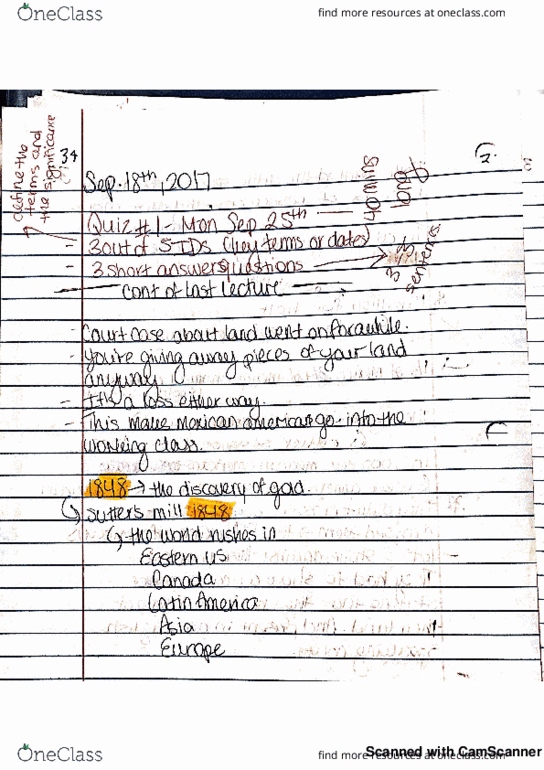 OneClass
find more resources at oneclass.com
define the
terms and
the significance
34
2.
Sep. 18th, 2017
Quiz #1 - Mon Sep 25th
- 3 out of 5 IDs (key terms or dates)
- 3 short answer questions
3-5
sentences.
cont of last lecture
Court case about land went on for awhile.
- You're giving away pieces of your land
anyway
- It's a loss either way.
- This make mexican americans go into the
working class.
1848 → the discovery of gold.
↳ Sutter's mill 1848
↳ the world rushes in
Eastern US
Canada
Latin America
Asia
Europe
OneClass
find more resources at oneclass.com
Scanned with CamScanner